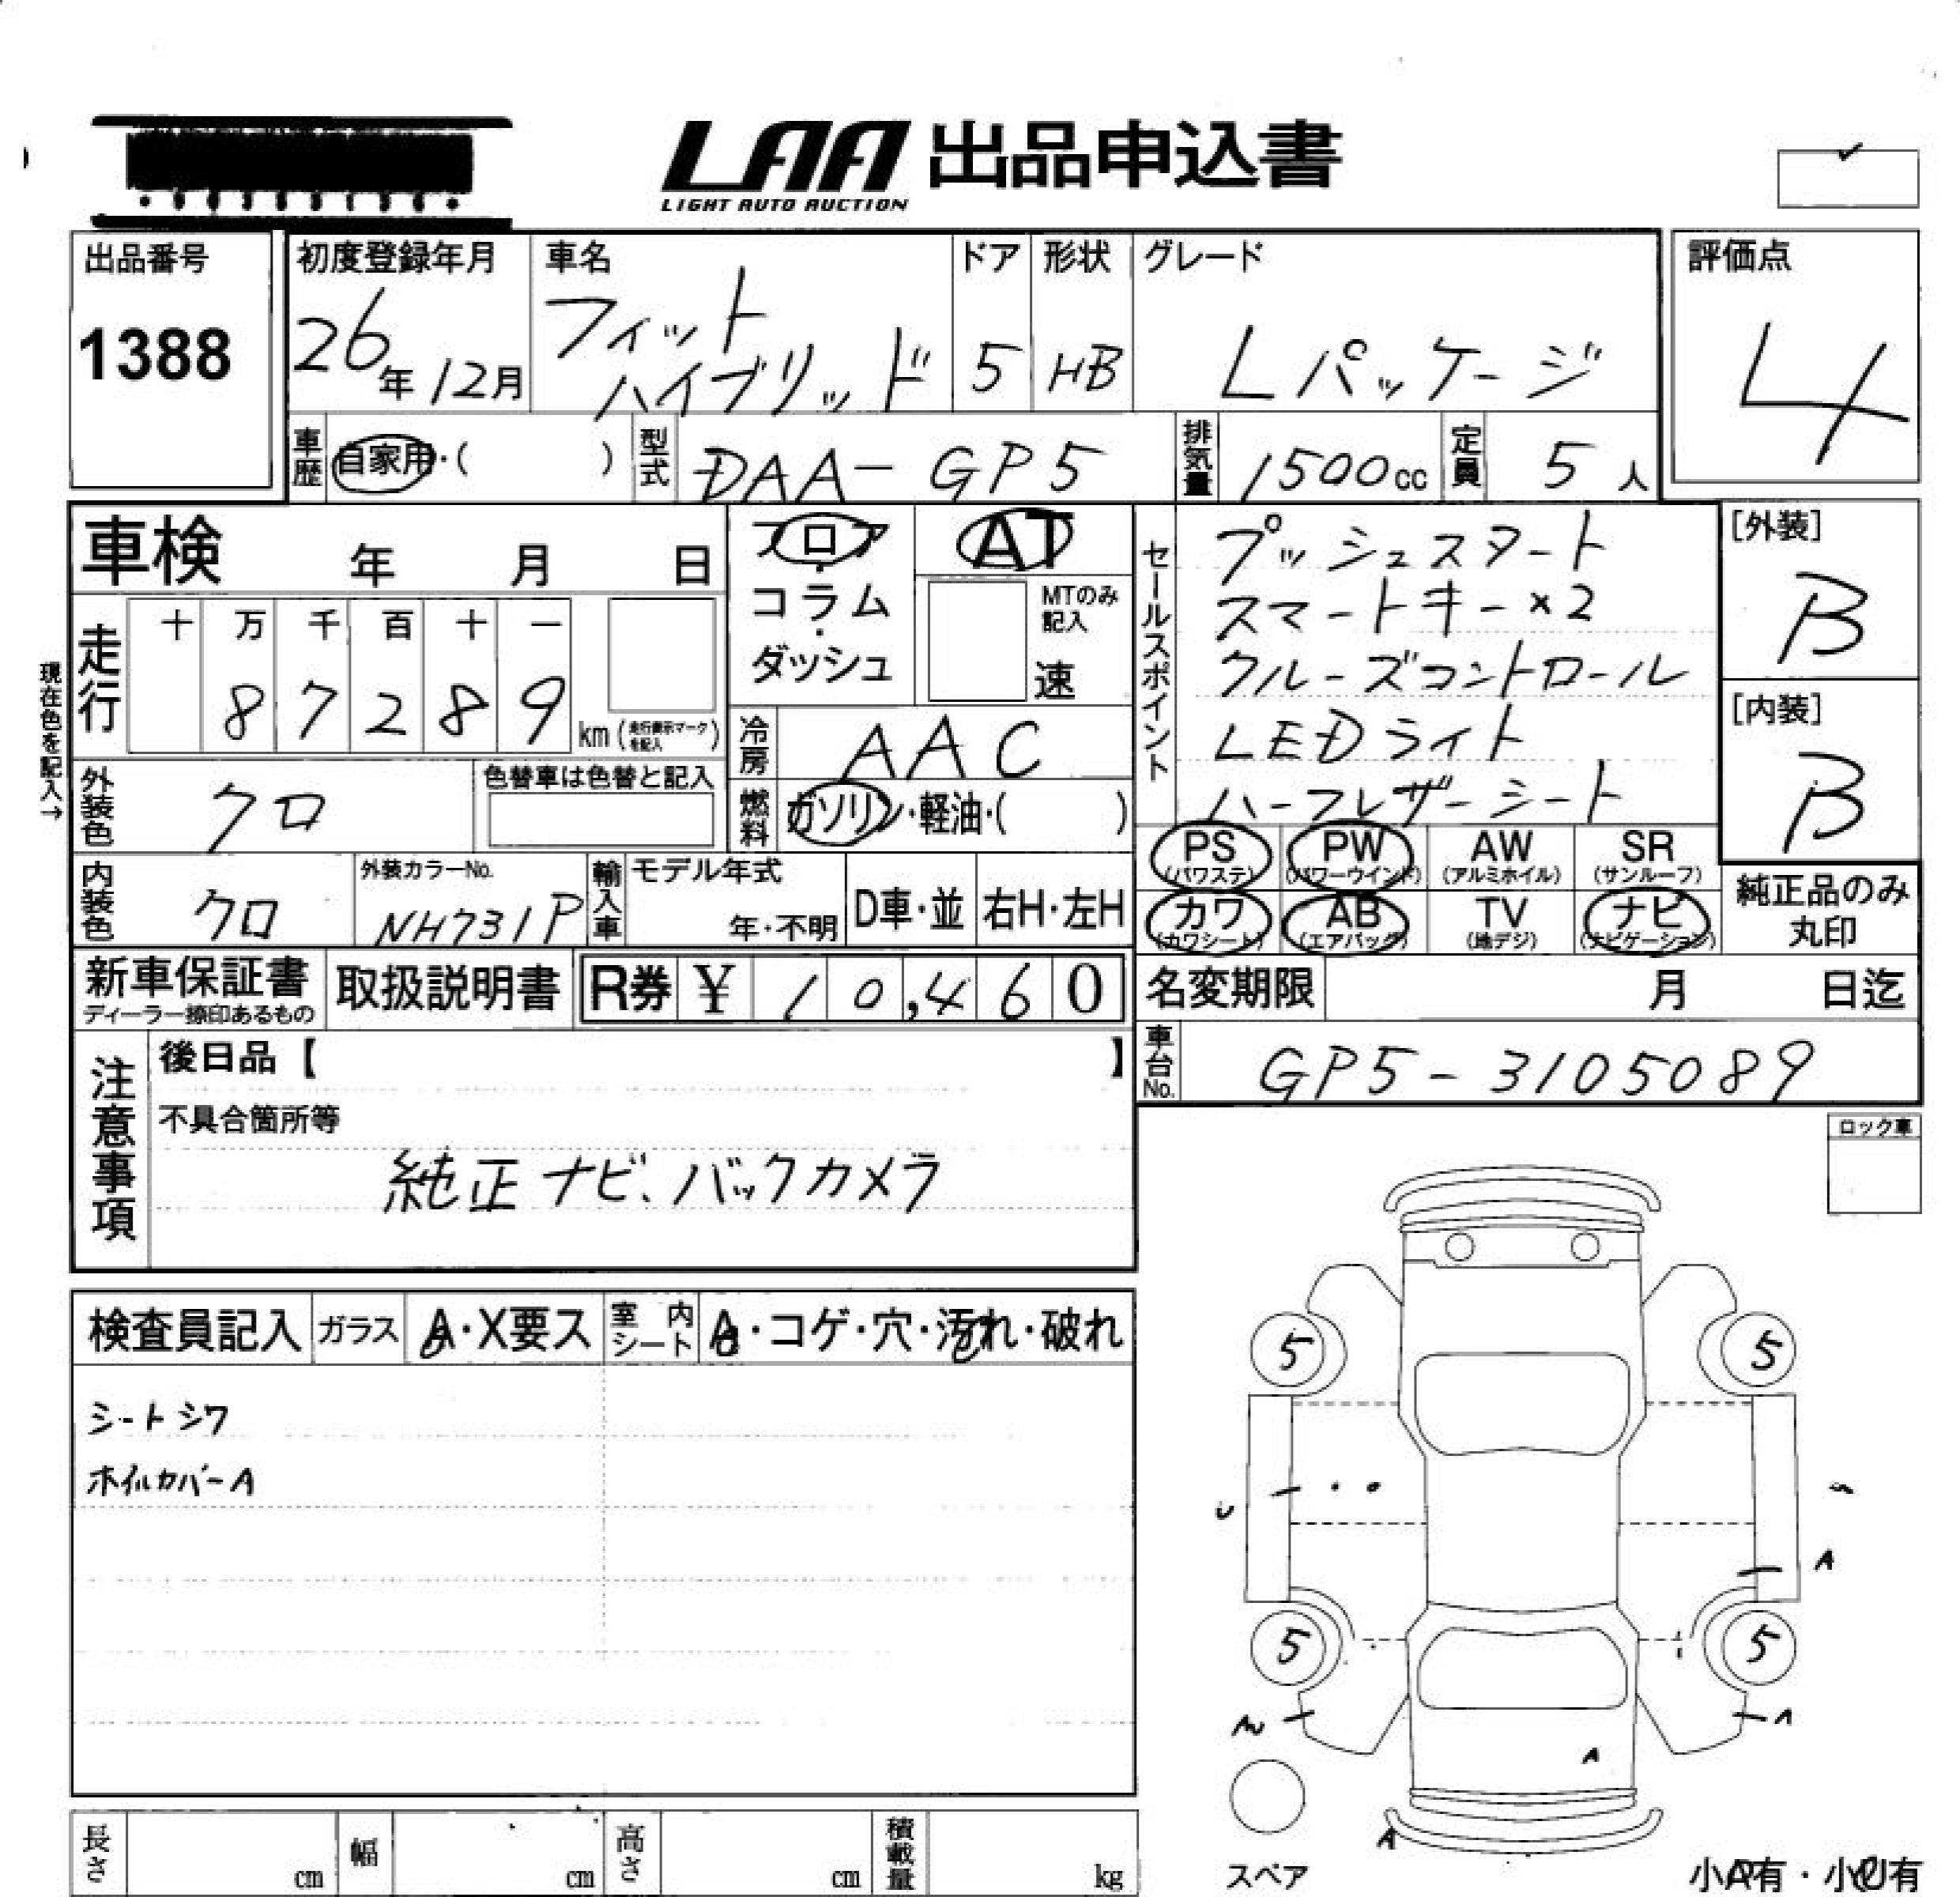 LAA 出品申込書
LIGHT AUTO AUCTION
出品番号
1388
初度登録年月
26年12月
車名
フィット
ハイブリッド
ドア
5
形状
HB
グレード
Lパッケージ
評価点
4
車歴
自家用・( )
型式
DAA-GP5
排気量
1500cc
定員
5人
車検 年 月 日
フロア・コラム・ダッシュ
AT
MTのみ記入
速
セールスポイント
プッシュスタート
スマートキー×2
クルーズコントロール
LEDライト
ハーフレザーシート
[外装]
B
[内装]
B
現在色を記入→
走行
十 万 千 百 十 一
8 7 2 8 9
km (走行表示マークを記入)
冷房
AAC
外装色
クロ
色替車は色替と記入
燃料
ガソリン・軽油・( )
PS (パワステ)
PW (パワーウインド)
AW (アルミホイル)
SR (サンルーフ)
内装色
クロ
外装カラーNo.
NH731P
輸入車
モデル年式
年・不明
D車・並
右H・左H
カワ (カワシート)
AB (エアバッグ)
TV (地デジ)
ナビ (ナビゲーション)
純正品のみ
丸印
新車保証書
ディーラー捺印あるもの
取扱説明書
R券 ¥ 10,460
名変期限 月 日迄
注意事項
後日品【 】
車台No.
GP5-3105089
不具合箇所等
純正ナビ、バックカメラ
ロック車
検査員記入
ガラス
A・X要ス
室内シート
・コゲ・穴・汚れ・破れ
シートシワ
ホイルカバーA
5
5
A
5
5
A
A
A
スペア
小A有・小U有
長さ cm
幅 cm
高さ cm
積載量 kg